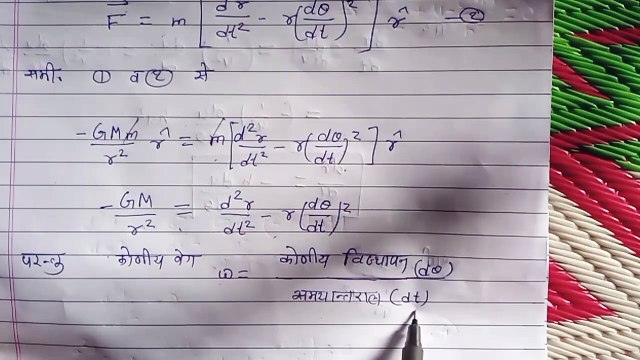 F⃗ = m [ d²r/dt² - r(dθ/dt)² ] r̂ —②
समी. ① व ② से
-GMm/r² r̂ = m[ d²r/dt² - r(dθ/dt)² ] r̂
-GM/r² = d²r/dt² - r(dθ/dt)²
परन्तु कोणीय वेग ω = कोणीय विस्थापन (dθ)
समयान्तराल (dt)